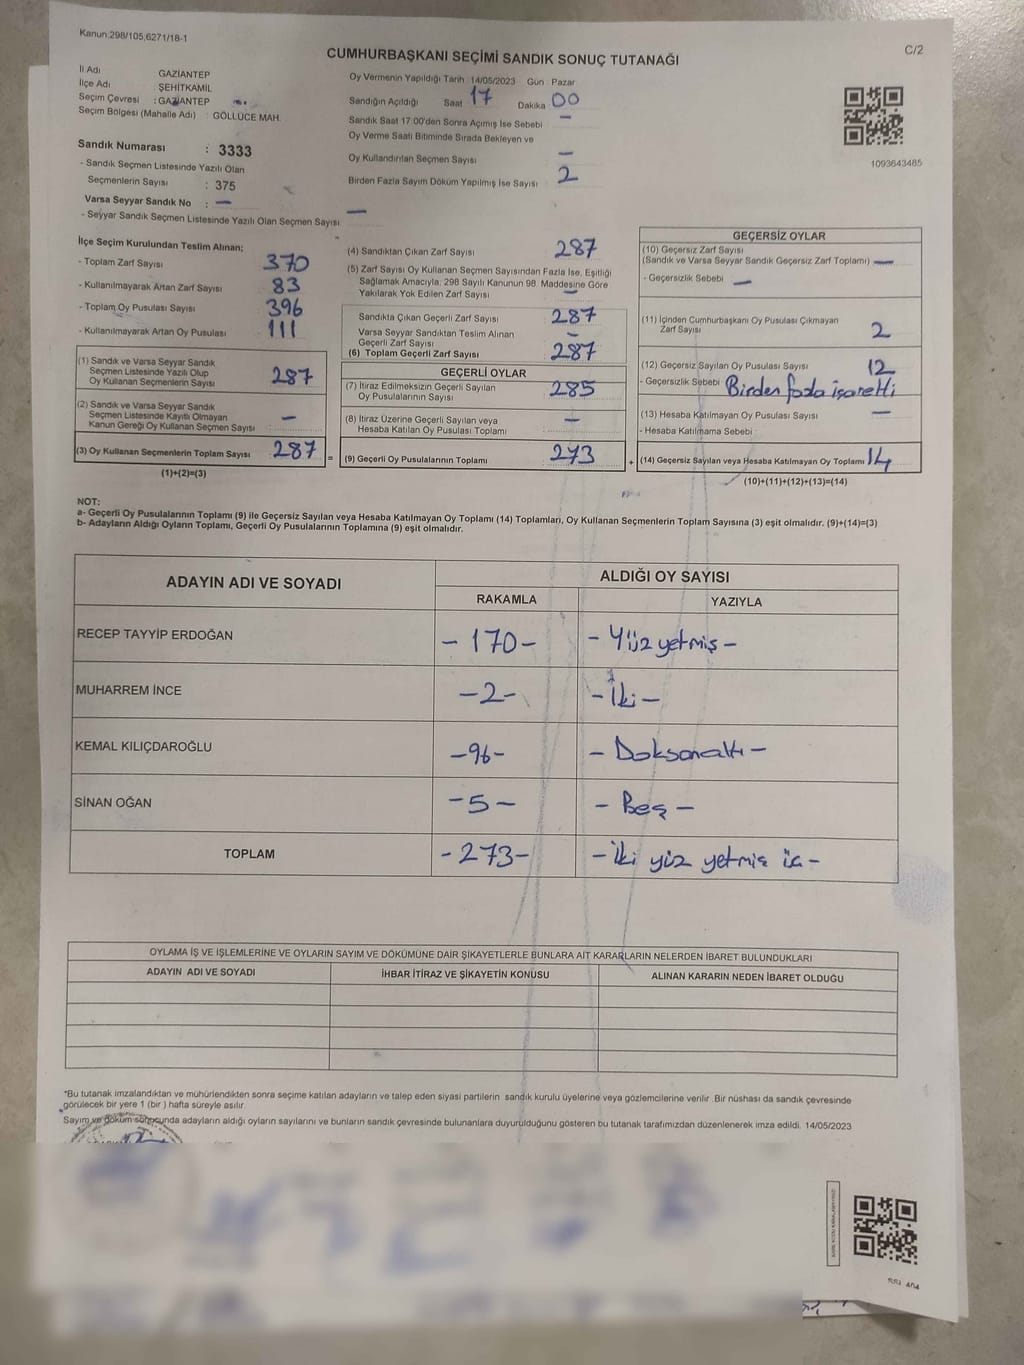 Kanun:298/105,6271/18-1
C/2
CUMHURBAŞKANI SEÇİMİ SANDIK SONUÇ TUTANAĞI
İl Adı GAZİANTEP
İlçe Adı ŞEHİTKAMİL
Seçim Çevresi : GAZİANTEP
Seçim Bölgesi (Mahalle Adı) : GÖLLÜCE MAH.
Sandık Numarası : 3333
- Sandık Seçmen Listesinde Yazılı Olan
Seçmenlerin Sayısı : 375
Varsa Seyyar Sandık No : —
- Seyyar Sandık Seçmen Listesinde Yazılı Olan Seçmen Sayısı: —
Oy Vermenin Yapıldığı Tarih 14/05/2023 Gün Pazar
Sandığın Açıldığı Saat 17 Dakika 00
Sandık Saat 17.00'den Sonra Açımış İse Sebebi —
Oy Verme Saati Bitiminde Sırada Bekleyen ve
Oy Kullandırılan Seçmen Sayısı —
Birden Fazla Sayım Döküm Yapılmış İse Sayısı 2
1093643485
İlçe Seçim Kurulundan Teslim Alınan;
- Toplam Zarf Sayısı 370
- Kullanılmayarak Artan Zarf Sayısı 83
- Toplam Oy Pusulası Sayısı 396
- Kullanılmayarak Artan Oy Pusulası 111
(1) Sandık ve Varsa Seyyar Sandık
Seçmen Listesinde Yazılı Olup
Oy Kullanan Seçmenlerin Sayısı 287
(2) Sandık ve Varsa Seyyar Sandık
Seçmen Listesinde Kayıtlı Olmayan
Kanun Gereği Oy Kullanan Seçmen Sayısı —
(3) Oy Kullanan Seçmenlerin Toplam Sayısı 287 =
(1)+(2)=(3)
(4) Sandıktan Çıkan Zarf Sayısı 287
(5) Zarf Sayısı Oy Kullanan Seçmen Sayısından Fazla İse, Eşitliği
Sağlamak Amacıyla, 298 Sayılı Kanunun 98. Maddesine Göre
Yakılarak Yok Edilen Zarf Sayısı —
Sandıkta Çıkan Geçerli Zarf Sayısı 287
Varsa Seyyar Sandıktan Teslim Alınan
Geçerli Zarf Sayısı —
(6) Toplam Geçerli Zarf Sayısı 287
GEÇERLİ OYLAR
(7) İtiraz Edilmeksizin Geçerli Sayılan
Oy Pusulalarının Sayısı 285
(8) İtiraz Üzerine Geçerli Sayılan veya
Hesaba Katılan Oy Pusulası Toplamı —
(9) Geçerli Oy Pusulalarının Toplamı 273 +
GEÇERSİZ OYLAR
(10) Geçersiz Zarf Sayısı
(Sandık ve Varsa Seyyar Sandık Geçersiz Zarf Toplamı) —
- Geçersizlik Sebebi —
(11) İçinden Cumhurbaşkanı Oy Pusulası Çıkmayan
Zarf Sayısı 2
(12) Geçersiz Sayılan Oy Pusulası Sayısı 12
- Geçersizlik Sebebi Birden fazla işaretli
(13) Hesaba Katılmayan Oy Pusulası Sayısı —
- Hesaba Katılmama Sebebi
(14) Geçersiz Sayılan veya Hesaba Katılmayan Oy Toplamı 14
(10)+(11)+(12)+(13)=(14)
NOT:
a- Geçerli Oy Pusulalarının Toplamı (9) ile Geçersiz Sayılan veya Hesaba Katılmayan Oy Toplamı (14) Toplamları, Oy Kullanan Seçmenlerin Toplam Sayısına (3) eşit olmalıdır. (9)+(14)=(3)
b- Adayların Aldığı Oyların Toplamı, Geçerli Oy Pusulalarının Toplamına (9) eşit olmalıdır.
ADAYIN ADI VE SOYADI
ALDIĞI OY SAYISI
RAKAMLA YAZIYLA
RECEP TAYYİP ERDOĞAN - 170 - - Yüz yetmiş -
MUHARREM İNCE - 2 - - İki -
KEMAL KILIÇDAROĞLU - 96 - - Doksanaltı -
SİNAN OĞAN - 5 - - Beş -
TOPLAM - 273 - - İki yüz yetmiş üç -
OYLAMA İŞ VE İŞLEMLERİNE VE OYLARIN SAYIM VE DÖKÜMÜNE DAİR ŞİKAYETLERLE BUNLARA AİT KARARLARIN NELERDEN İBARET BULUNDUKLARI
ADAYIN ADI VE SOYADI İHBAR İTİRAZ VE ŞİKAYETİN KONUSU ALINAN KARARIN NEDEN İBARET OLDUĞU
*Bu tutanak imzalandıktan ve mühürlendikten sonra seçime katılan adayların ve talep eden siyasi partilerin sandık kurulu üyelerine veya gözlemcilerine verilir. Bir nüshası da sandık çevresinde
görülecek bir yere 1 (bir ) hafta süreyle asılır.
Sayım ve döküm sonucunda adayların aldığı oyların sayılarını ve bunların sandık çevresinde bulunanlara duyurulduğunu gösteren bu tutanak tarafımızdan düzenlenerek imza edildi. 14/05/2023